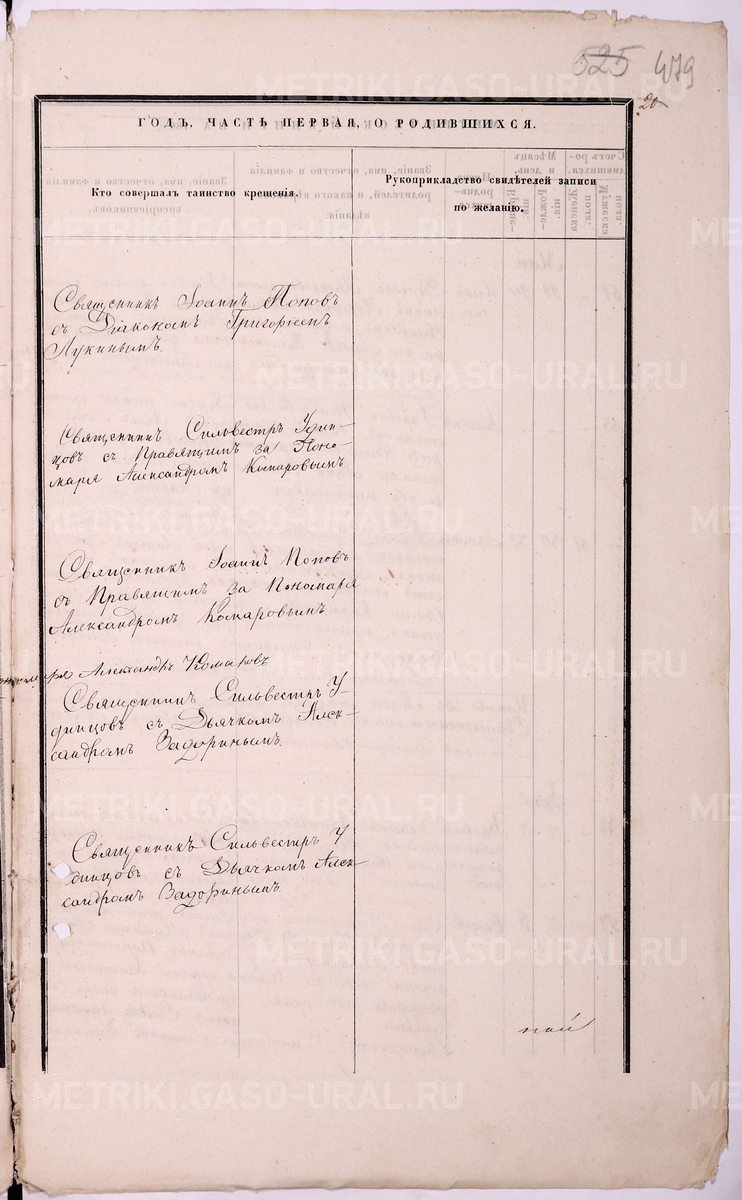 525 479
20
ГОДЪ, ЧАСТЬ ПЕРВАЯ, О РОДИВШИХСЯ.
Кто совершалъ таинство крещенія.
Рукоприкладство свидѣтелей записи
по желанію.
Священникъ Іоаннъ Поповъ
съ Діакономъ Григоріемъ
Лукинымъ.
Священникъ Сильвестръ Удин-
цовъ съ Правящимъ за Поно-
маря Александромъ Комаровымъ.
Священникъ Іоаннъ Поповъ
съ Правящимъ за Пономаря
Александромъ Комаровымъ.
Александръ Комаровъ
Священникъ Сильвестръ У-
динцовъ съ Дьячкомъ Алек-
сандромъ Задоринымъ.
Священникъ Сильвестръ У
динцовъ съ Дьячкомъ Алек-
сандромъ Задоринымъ.
METRIKI.GASO-URAL.RU